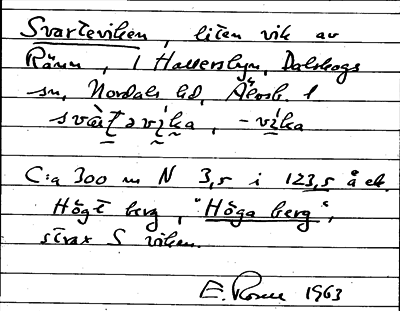 Svarteviken, liten vik av
Rännn, i Hallersbyn, Dalskogs
sn, Nordals hd, Älvsb. l
svàt̩əvi̩ka, -vi̩ka
C:a 300 m N 3,5 i 123,5 å ek.
Högt berg, "Höga berg",
strax S viken.
E. 1963